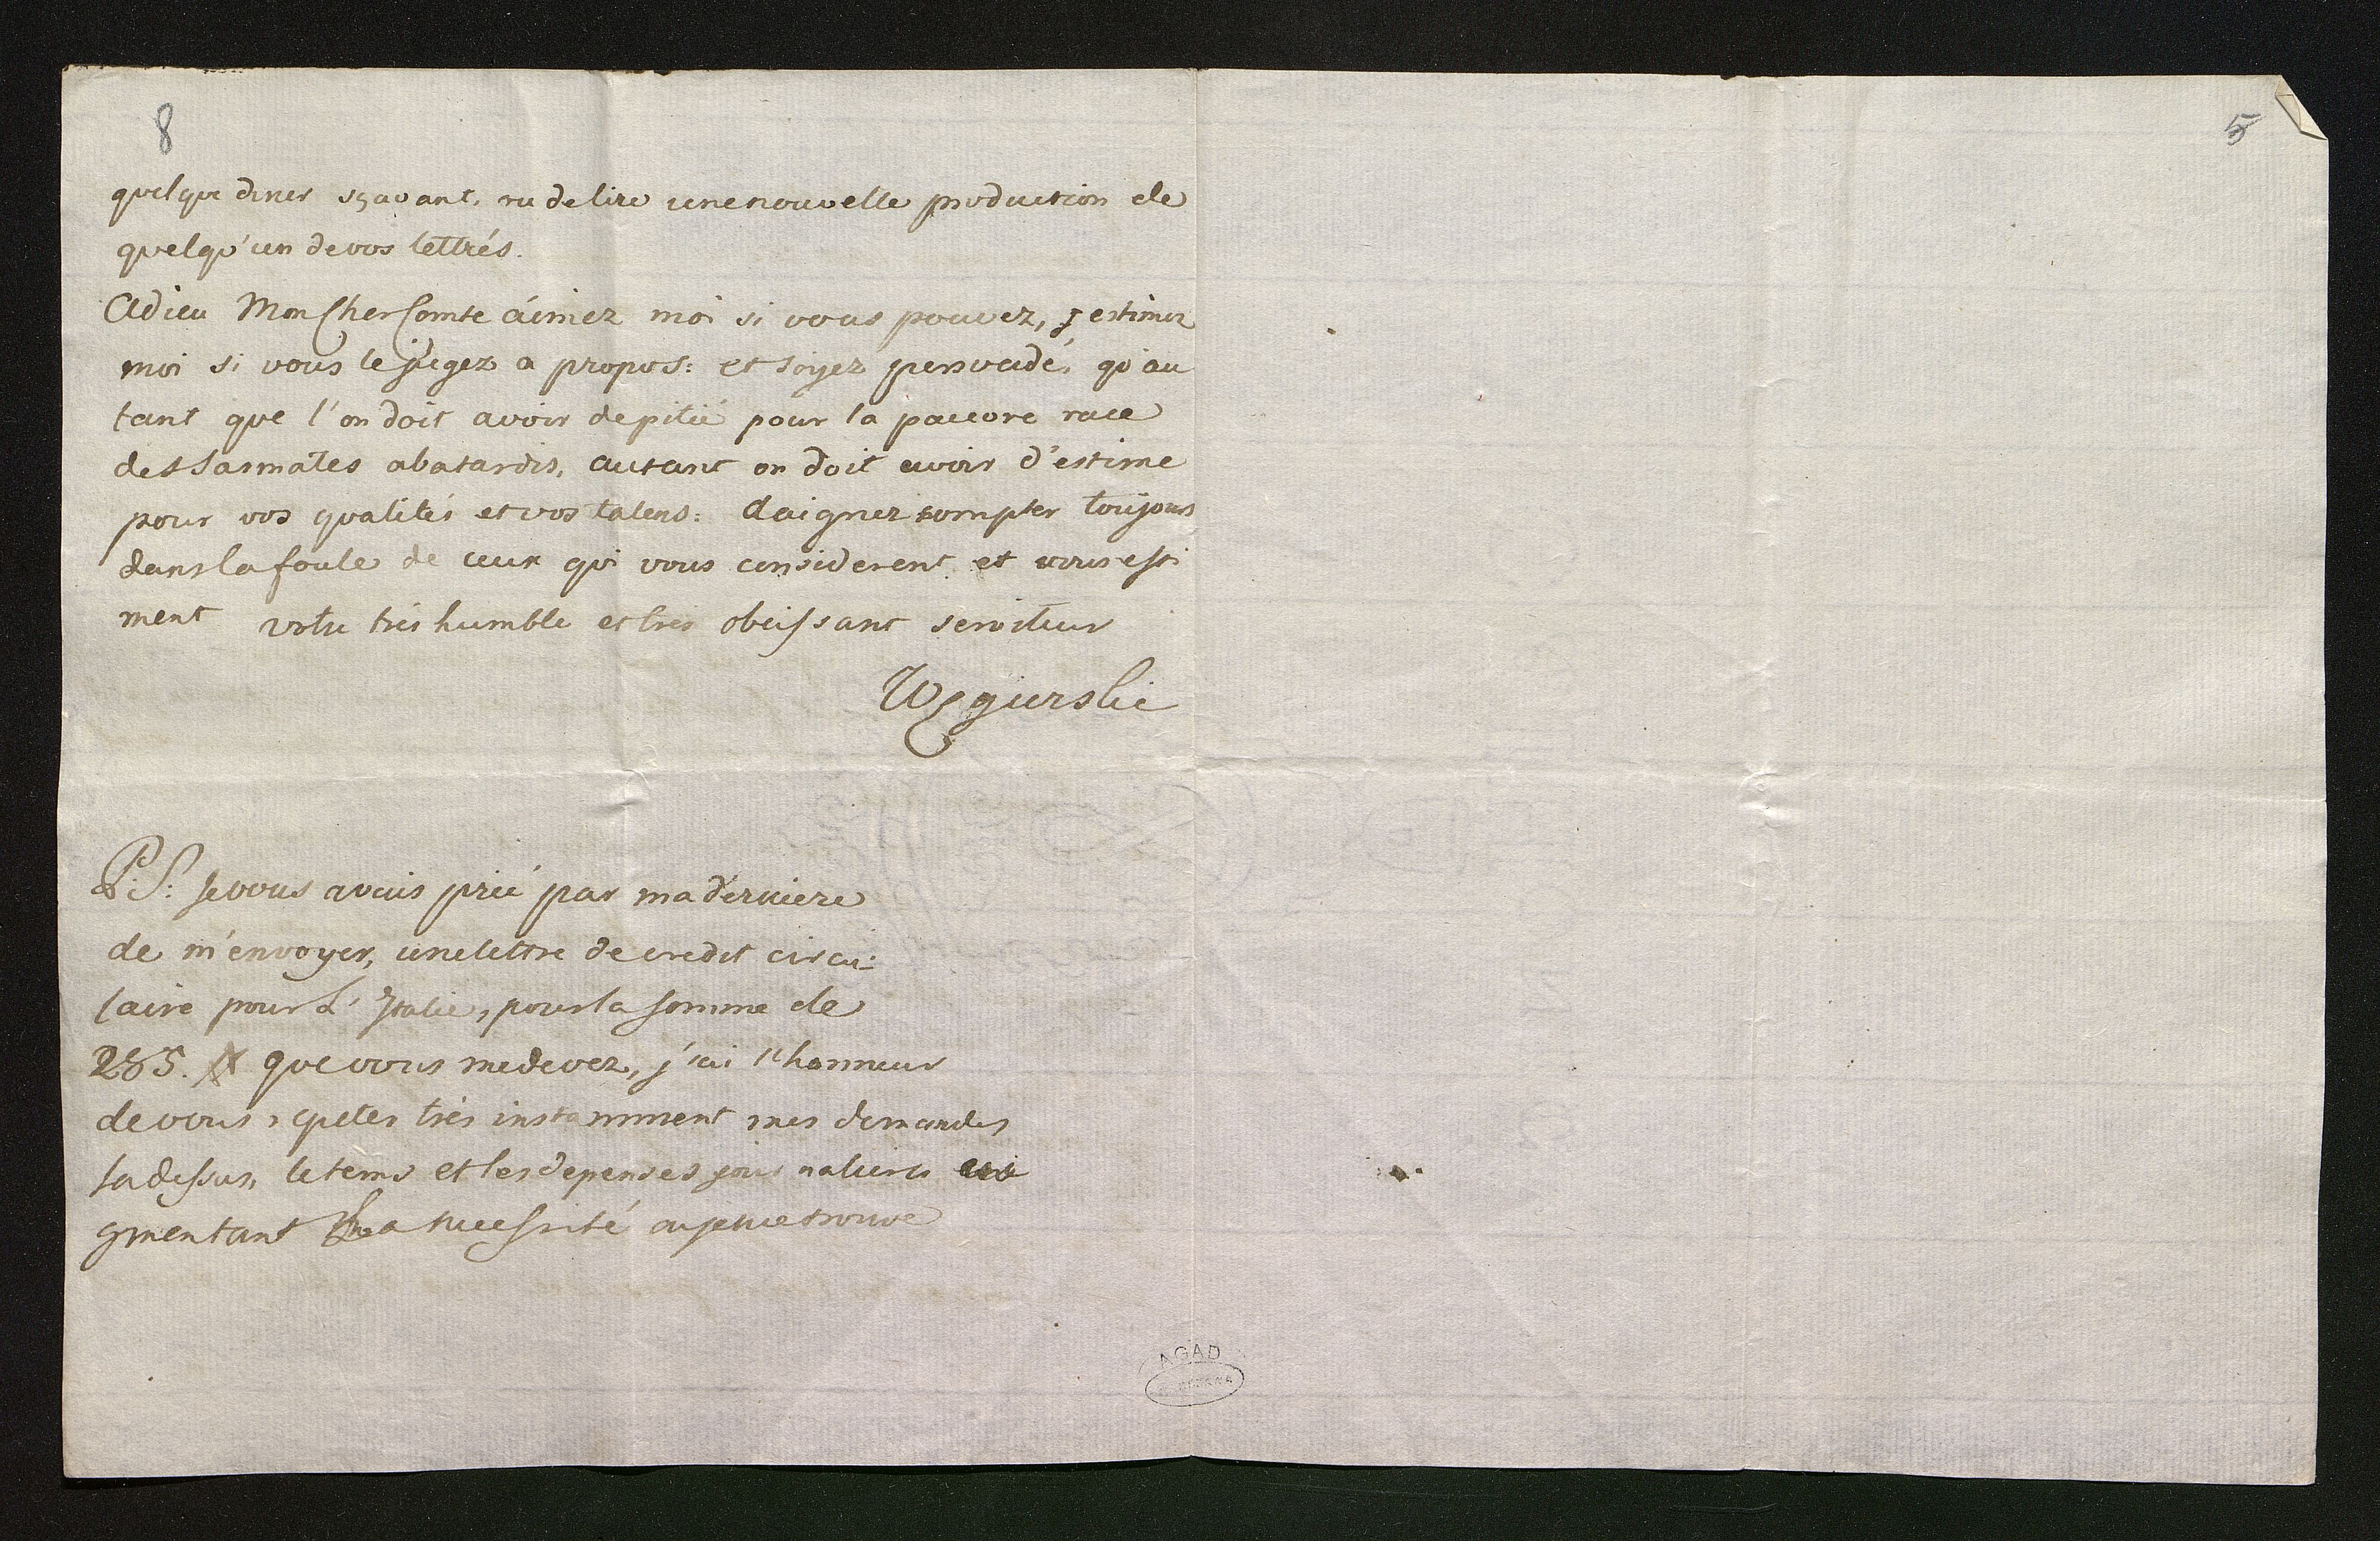 8
5
quelque diner sçavant, ou de lire une nouvelle production de
quelqu'un de vos lettrés.
Adieu Mon Cher Comte aimez moi si vous pouvez, estimez
moi si vous le jugez a propos: et soyez persuadé, qu'au
tant que l'on doit avoir de pitié pour la pauvre race
des Sarmates abatardis, autant on doit avoir d'estime
pour vos qualités et vos talens: daignez compter toujours
dans la foule de ceux qui vous considerent et vous esti
ment votre très humble et très obeissant serviteur
Węgierski
P:S: Je vous avais prié par ma derniere
de m'envoyer, une lettre de credit circu-
laire pour L'Italie, pour la somme de
285. # que vous me devez, j'ai l'honneur
de vous repeter très instamment mes demandes
la dessus, le tems et les depenses journalieres au
gmentant la necessité ou je me trouve
AGAD